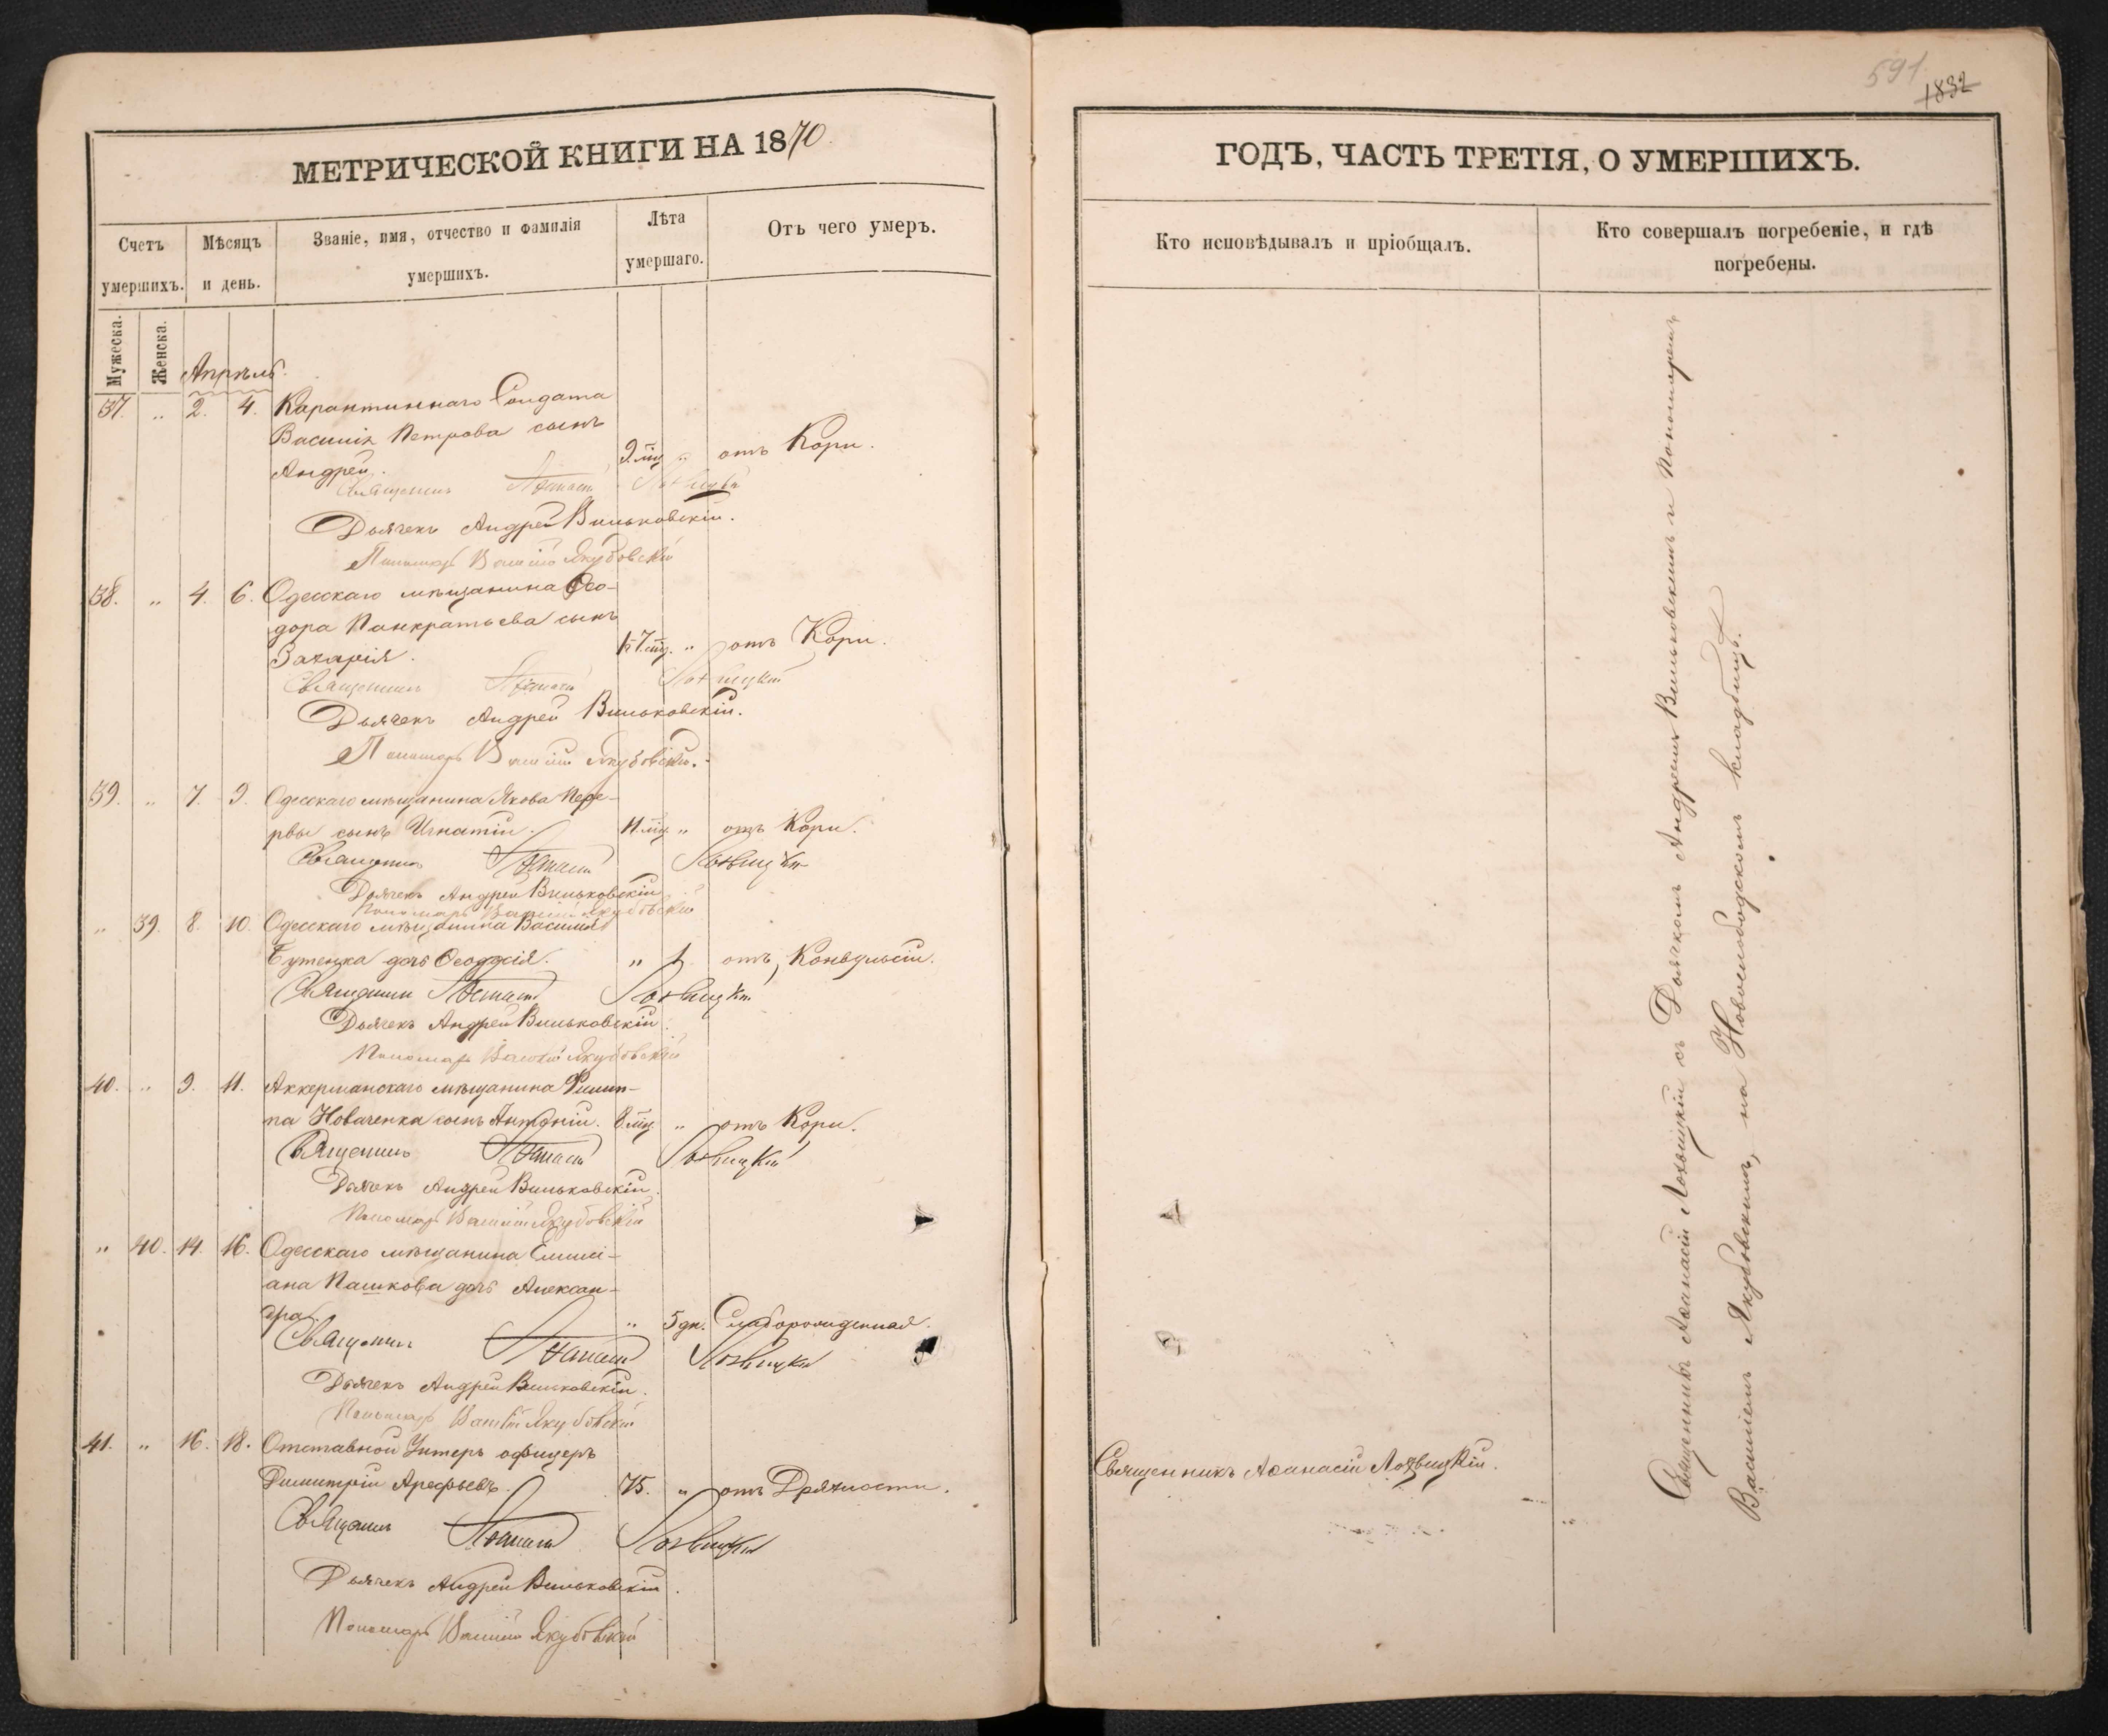 МЕТРИЧЕСКОЙ КНИГИ НА 1870
Счетъ умершихъ.
Мѣсяцъ и день.
Званіе, имя, отчество и фамилія умершихъ.
Лѣта умершаго.
Отъ чего умеръ.
Мужеска.
Женска.
Апрѣль.
37. „ 2. 4. Карантиннаго Солдата
Василія Петрова сынъ
Андрей. 9 мц „ отъ Кори.
Священникъ Аѳанасій Лозвицкій
Дьячекъ Андрей Вильковскій.
Пономарь Василій Якубовскій
38. „ 4. 6. Одесскаго мѣщанина Ѳео-
дора Панкратьева сынъ
Захарія. 1 7 мц. „ отъ Кори.
Священникъ Аѳанасій Лозвицкій
Дьячекъ Андрей Вильковскій.
Пономарь Василій Якубовскій.
39. „ 7. 9. Одесскаго мѣщанина Якова Пере-
рвы сынъ Игнатій. 11 мц „ отъ Кори.
Священникъ Аѳанасій Лозвицкій
Дьячекъ Андрей Вильковскій
Пономарь Василій Якубовскій
„ 39. 8. 10. Одесскаго мѣщанина Василія
Бутенка дочь Ѳеодосія. „ 1. отъ Конвульсіи.
Священникъ Аѳанасій Лозвицкій
Дьячекъ Андрей Вильковскій.
Пономарь Василій Якубовскій
40. „ 9. 11. Аккерманскаго мѣщанина Филип-
па Новаченка сынъ Антоній. 8 мц „ отъ Кори.
Священникъ Аѳанасій Лозвицкій
Дьячекъ Андрей Вильковскій.
Пономарь Василій Якубовскій
„ 40. 14. 16. Одесскаго мѣщанина Емили-
ана Пашкова дочь Алексан-
дра. „ 5 дн. Слаборожденная.
Священникъ Аѳанасій Лозвицкій
Дьячекъ Андрей Вильковскій.
Пономарь Василій Якубовскій
41. „ 16. 18. Отставной Унтеръ офицеръ
Димитрій Арефьевъ. 75. „ отъ Дряхлости.
Священникъ Аѳанасій Лозвицкій
Дьячекъ Андрей Вильковскій.
Пономарь Василій Якубовскій
591
1832
ГОДЪ, ЧАСТЬ ТРЕТІЯ, О УМЕРШИХЪ.
Кто исповѣдывалъ и пріобщалъ.
Кто совершалъ погребеніе, и гдѣ
погребены.
Священникъ Аѳанасій Лозвицкій.
Священникъ Аѳанасій Лозвицкій съ Дьячкомъ Андреемъ Вильковскимъ и Пономаремъ
Василіемъ Якубовскимъ, на Новослободскомъ кладбищѣ.